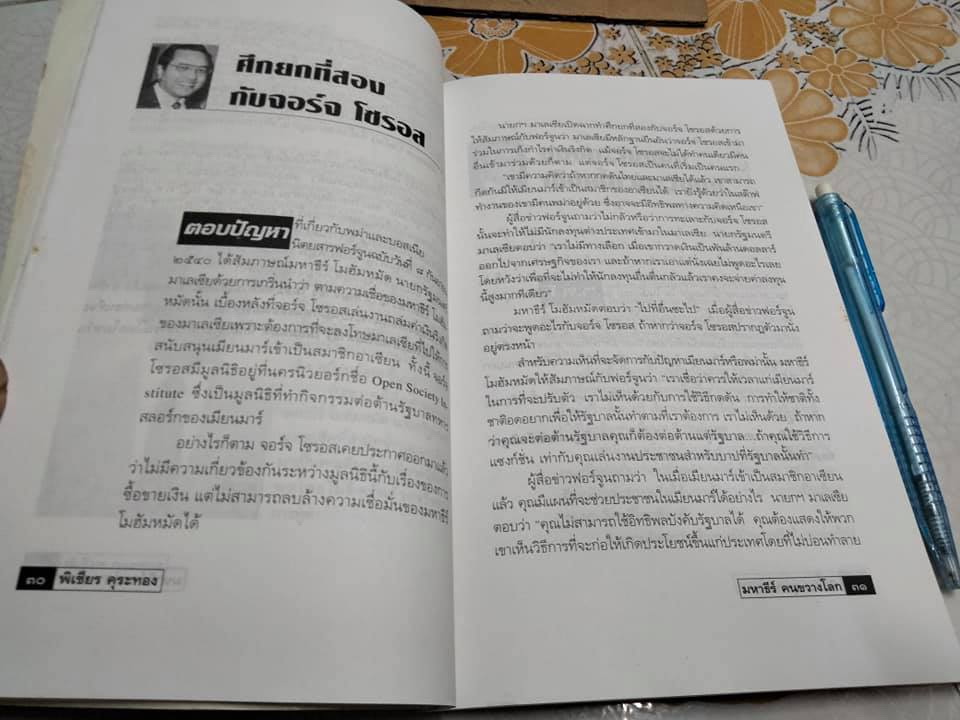 ศึกยกที่สอง
กับจอร์จ โซรอส
ตอบปัญหา ที่เกี่ยวกับพม่าและบอสเนีย
นิตยสารฟอร์จูนฉบับวันที่ ๘
๒๕๔๐ ได้สัมภาษณ์มหาธีร์ โมฮัมหมัด นายกรัฐมนตรี
มาเลเซียด้วยการเกริ่นนำว่า ตามความเชื่อของมหาธีร์
หมัดนั้น เบื้องหลังที่จอร์จ โซรอสเล่นงานถล่มค่าเงิน
ของมาเลเซียเพราะต้องการที่จะลงโทษมาเลเซียที่ไปให้การ
สนับสนุนเมียนมาร์เข้าเป็นสมาชิกอาเซียน ทั้งนี้
โซรอสมีมูลนิธิอยู่ที่นครนิวยอร์กชื่อ Open Society In-
stitute ซึ่งเป็นมูลนิธิที่ทำกิจกรรมต่อต้านรัฐบาลทหาร
สลอร์กของเมียนมาร์
อย่างไรก็ตาม จอร์จ โซรอสเคยประกาศออกมาแล้ว
ว่าไม่มีความเกี่ยวข้องกันระหว่างมูลนิธินี้กับเรื่องของการ
ซื้อขายเงิน แต่ไม่สามารถลบล้างความเชื่อมั่นของมหาธีร์
โมฮัมหมัดได้
๓๐ พิเชียร คุระทอง
นายกฯ มาเลเซียเปิดฉากทำศึกยกที่สองกับจอร์จ โซรอสด้วยการ
ให้สัมภาษณ์กับฟอร์จูนว่า มาเลเซียมีหลักฐานยืนยันว่าจอร์จ โซรอสเข้ามา
ร่วมในการเก็งกำไรค่าเงินริงกิต แม้จอร์จ โซรอสจะไม่ได้ทำคนเดียวมีคน
อื่นเข้ามาร่วมด้วยก็ตาม แต่จอร์จ โซรอสเป็นคนที่เริ่มเป็นคนแรก...
"เขามีความคิดว่าถ้าหากกดดันไทยและมาเลเซียได้แล้ว เขาสามารถ
กีดกันมิให้เมียนมาร์เข้าเป็นสมาชิกของอาเซียนได้ เรายังรู้ด้วยว่าในสต๊าฟ
ทำงานของเขามีคนพม่าอยู่ด้วย ซึ่งอาจจะมีอิทธิพลทางความคิดเหนือเขา"
ผู้สื่อข่าวฟอร์จูนถามว่าไม่กลัวหรือว่าการทะเลาะกับจอร์จ โซรอส
นั้นจะทำให้ไม่มีนักลงทุนต่างประเทศเข้ามาในมาเลเซีย นายกรัฐมนตรี
มาเลเซียตอบว่า "เราไม่มีทางเลือก เมื่อเขากวาดเงินเป็นพันล้านดอลลาร์
ออกไปจากเศรษฐกิจของเรา และถ้าหากเราเอาแต่นั่งเฉยไม่พูดอะไรเลย
โดยหวังว่าเพื่อที่จะไม่ทำให้นักลงทุนอื่นตื่นกลัวแล้วเราคงจะจ่ายค่าลงทุน
นี้สูงมากทีเดียว"
มหาธีร์ โมฮัมหมัดตอบว่า "ไปที่อื่นซะไป" เมื่อผู้สื่อข่าวฟอร์จูน
ถามว่าจะพูดอะไรกับจอร์จ โซรอส ถ้าหากว่าจอร์จ โซรอสปรากฏตัวมานั่ง
อยู่ตรงหน้า
สำหรับความเห็นที่จะจัดการกับปัญหาเมียนมาร์หรือพม่านั้น มหาธีร์
โมฮัมหมัดให้สัมภาษณ์กับฟอร์จูนว่า "เราเชื่อว่าควรให้เวลาแก่เมียนมาร์
ในการที่จะปรับตัว เราไม่เห็นด้วยกับการใช้วิธีกดดัน การทำให้ชาติทั้ง
ชาติอดอยากเพื่อให้รัฐบาลนั้นทำตามที่เราต้องการ เราไม่เห็นด้วย ถ้าหาก
ว่าคุณจะต่อต้านรัฐบาลคุณก็ต้องต่อต้านแต่รัฐบาล...ถ้าคุณใช้วิธีการ
แซงก์ชั่น เท่ากับคุณเล่นงานประชาชนสำหรับบาปที่รัฐบาลนั้นทำ"
ผู้สื่อข่าวฟอร์จูนถามว่า ในเมื่อเมียนมาร์เข้าเป็นสมาชิกอาเซียน
แล้ว คุณมีแผนที่จะช่วยประชาชนในเมียนมาร์ได้อย่างไร นายกฯ มาเลเซีย
ตอบว่า "คุณไม่สามารถใช้อิทธิพลบังคับรัฐบาลได้ คุณต้องแสดงให้พวก
เขาเห็นวิธีการที่จะก่อให้เกิดประโยชน์ขึ้นแก่ประเทศโดยที่ไม่บ่อนทำลาย
มหาธีร์ คนขวางโลก ๓๑